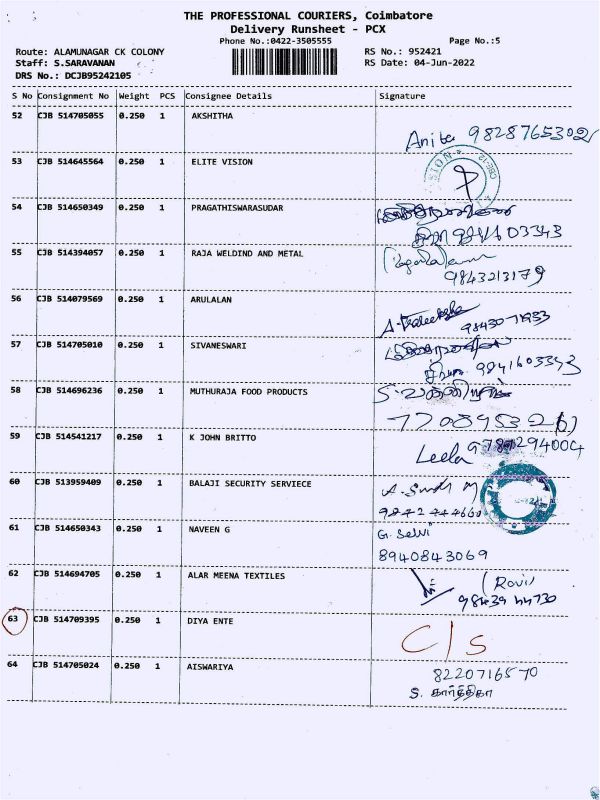 THE PROFESSIONAL COURIERS, Coimbatore
Delivery Runsheet - PCX
Phone No.:0422-3505555
Page No.:5
Route: ALAMUNAGAR CK COLONY
RS No.: 952421
Staff: S.SARAVANAN
RS Date: 04-Jun-2022
DRS No.: DCJB95242105
S No Consignment No Weight PCS Consignee Details Signature
52 CJB 514705055 0.250 1 AKSHITHA
Anita 9828765302
53 CJB 514645564 0.250 1 ELITE VISION
54 CJB 514650349 0.250 1 PRAGATHISWARASUDAR
9841603343
55 CJB 514394057 0.250 1 RAJA WELDIND AND METAL
9843213179
56 CJB 514079569 0.250 1 ARULALAN
57 CJB 514705010 0.250 1 SIVANESWARI
9841603343
58 CJB 514696236 0.250 1 MUTHURAJA FOOD PRODUCTS
59 CJB 514541217 0.250 1 K JOHN BRITTO
Leela
60 CJB 513959409 0.250 1 BALAJI SECURITY SERVIECE
61 CJB 514650343 0.250 1 NAVEEN G
G. Selvi
8940843069
62 CJB 514694705 0.250 1 ALAR MEENA TEXTILES
(Ravi)
98439 44730
63 CJB 514709395 0.250 1 DIYA ENTE
C/S
64 CJB 514705024 0.250 1 AISWARIYA
8220716570
S. கார்த்திகா